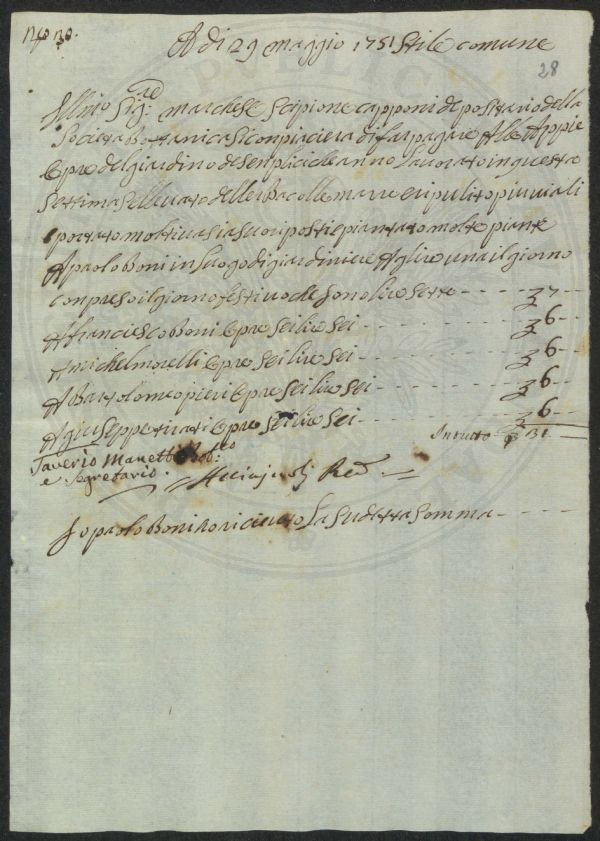 No 30.
A di 29 maggio 1751 Stile comune
28
Illmo Sigre marchese Scipione capponi depositario della
Societa Bottanica si conpiacera di far pagare Alle Appie
Opre del giardino de senplici che anno lavorato in questa
Settima Sellevato delle Bacolle marre e ripulito piu viali
e portato molti vasi a suoi posti e piantato molte piante
A paolo Boni in luogo di giardiniere A lire una il giorno
conpreso il giorno festivo che sono lire sette - - - - 7 - -
A franciesco Boni Opre Sei lire sei - - - - - - - 6 - -
A michel morelli Opre Sei lire sei - - - - - - - 6 - -
A Bartolomeo pieri Opre Sei lire sei - - - - - - 6 - -
A giuseppe tirati Opre Sei lire sei - - - - - - - 6 - -
In tutto 31 - -
Saverio Manetti
e Segretario.
Io paolo Boni o riceuto la sudetta somma - - - -
PUBLICA